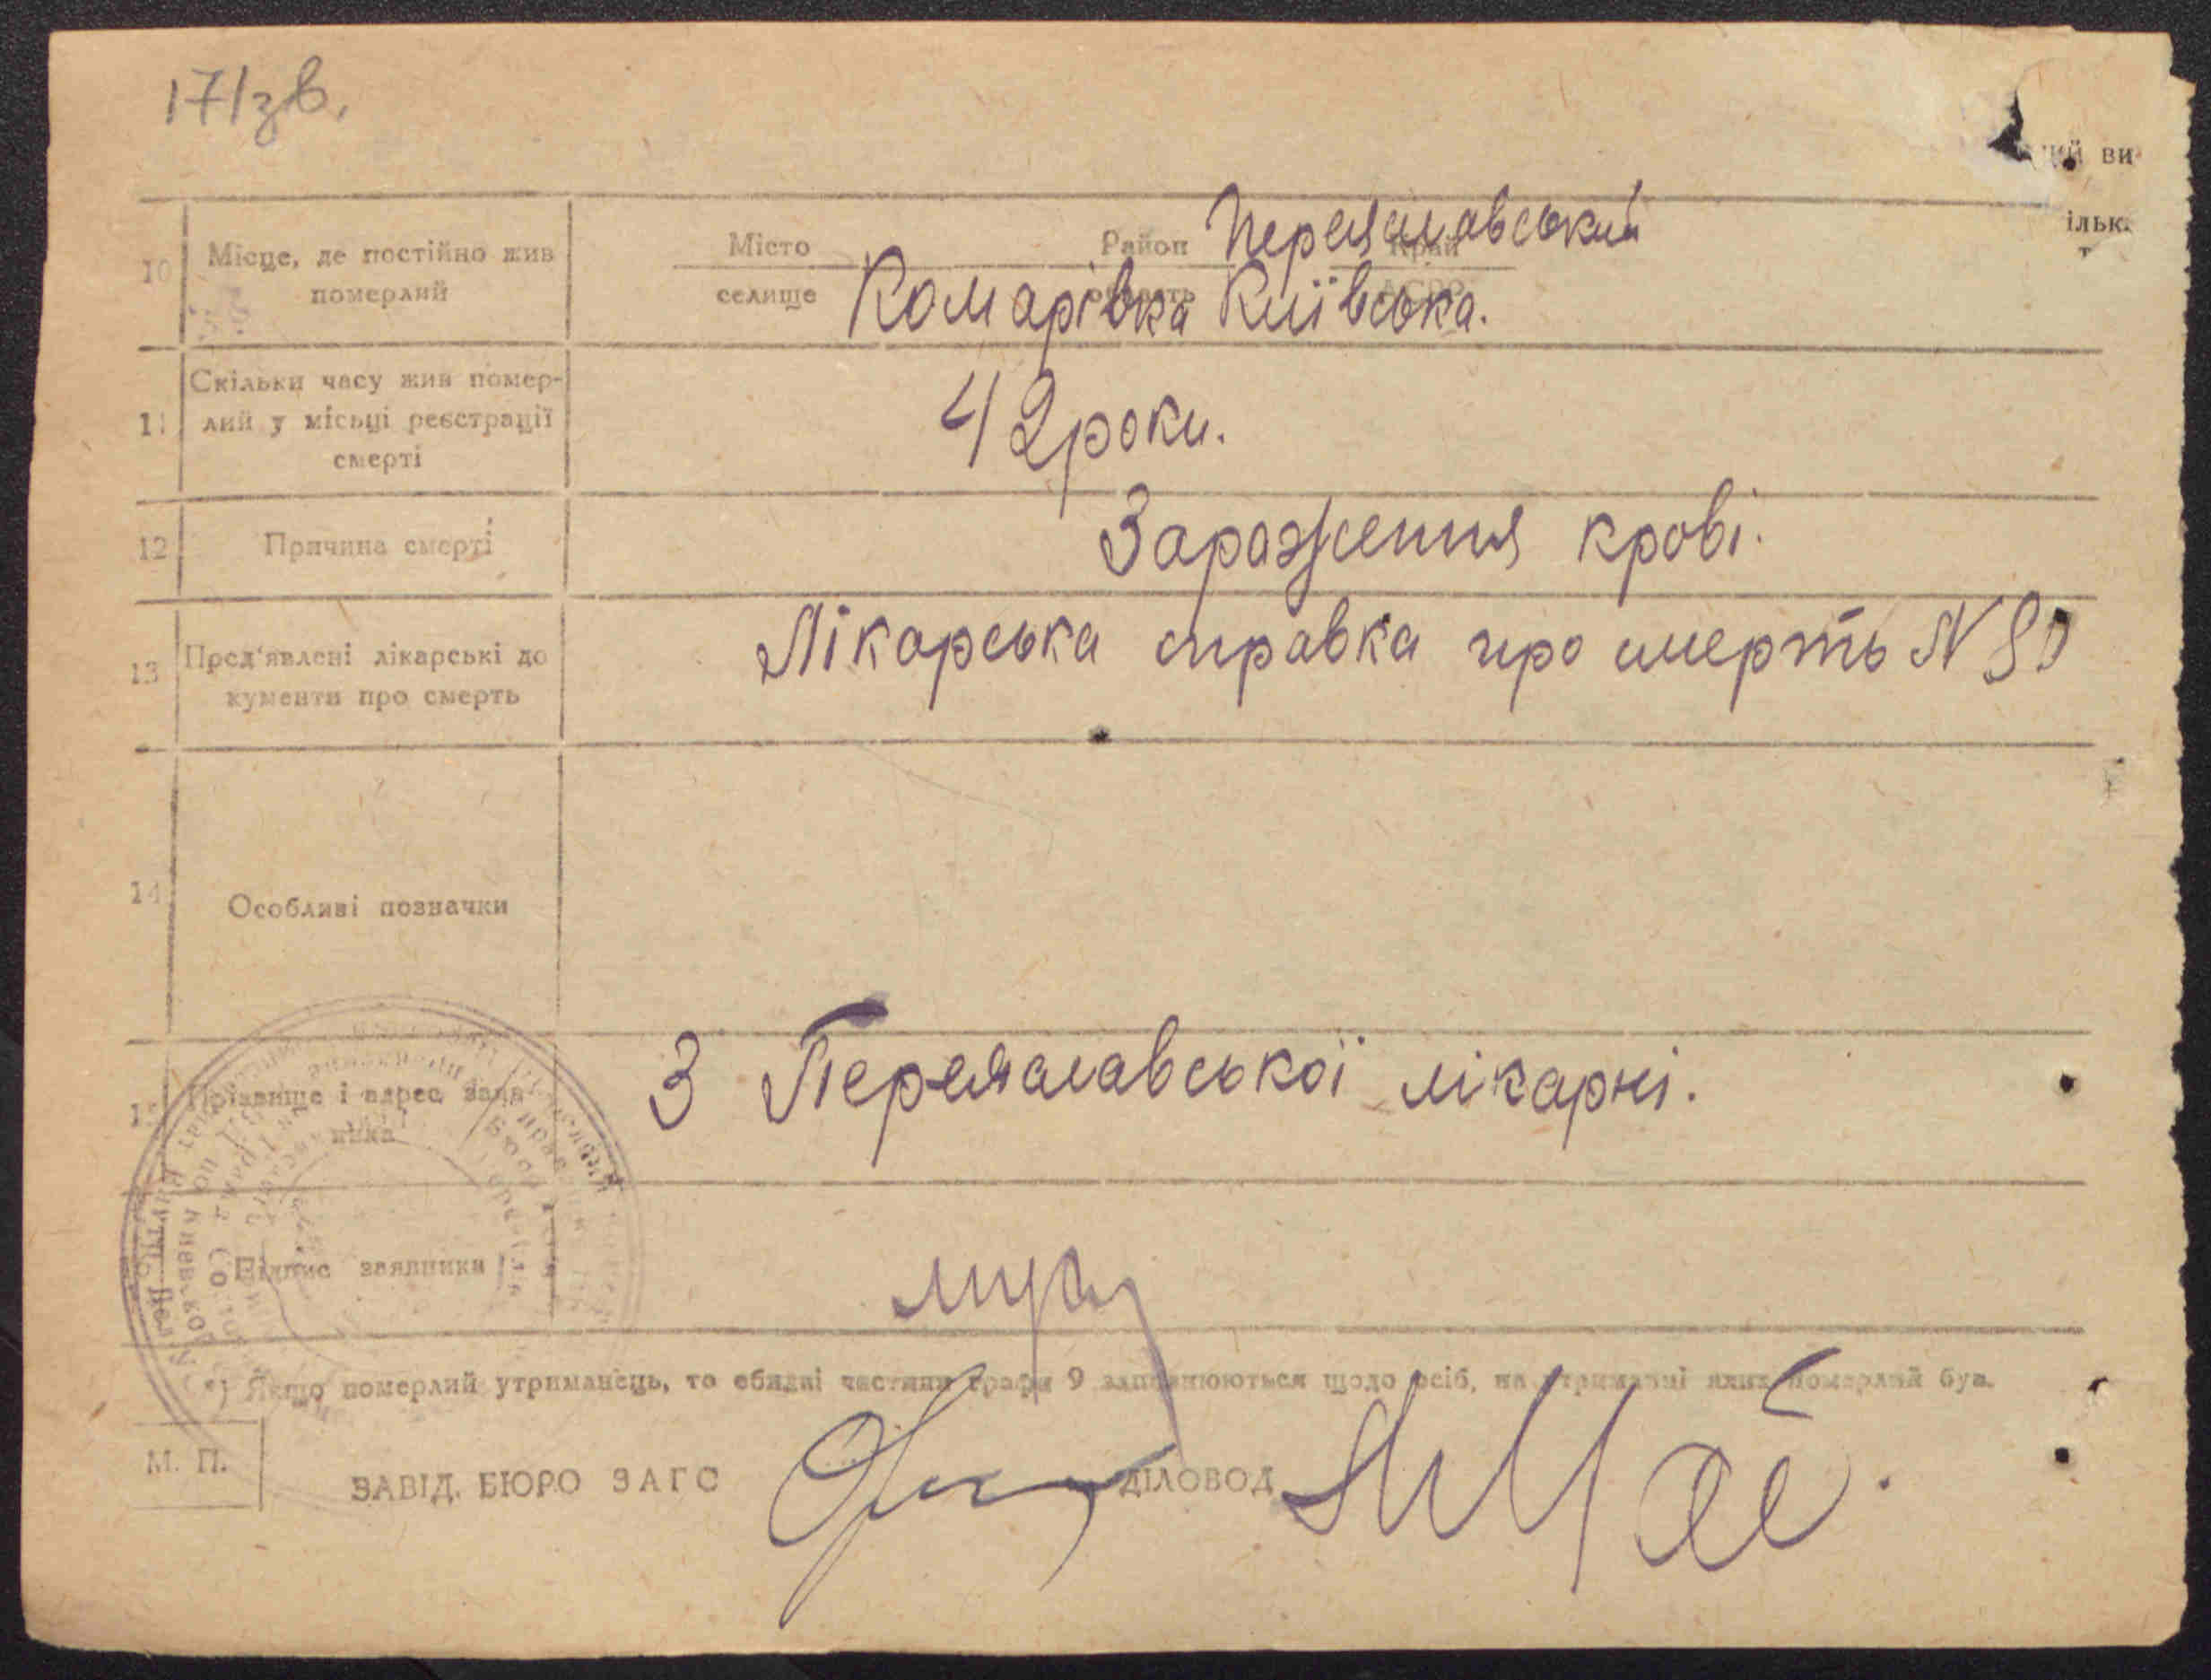 171зв.
ий ви
ільк
10 Місце, де постійно жив
померлий
Місто
селище
Район Переяславський
область
Край
АСРР
Комарівка Київська.
11 Скільки часу жив помер-
лий у місьці реєстрації
смерті
42 роки.
12 Причина смерті
Зараження крові.
13 Пред'явлені лікарські до
кументи про смерть
Лікарська справка про смерть N 80
14 Особливі позначки
15 Прізвище і адрес заяв
ника
З Переяславської лікарні.
Підпис заявника
*) Якщо померлий утриманець, то обидві частини графи 9 заповнюються щодо осіб, на утриманні яких померлий був.
М. П.
ЗАВІД. БЮРО ЗАГС
ДІЛОВОД